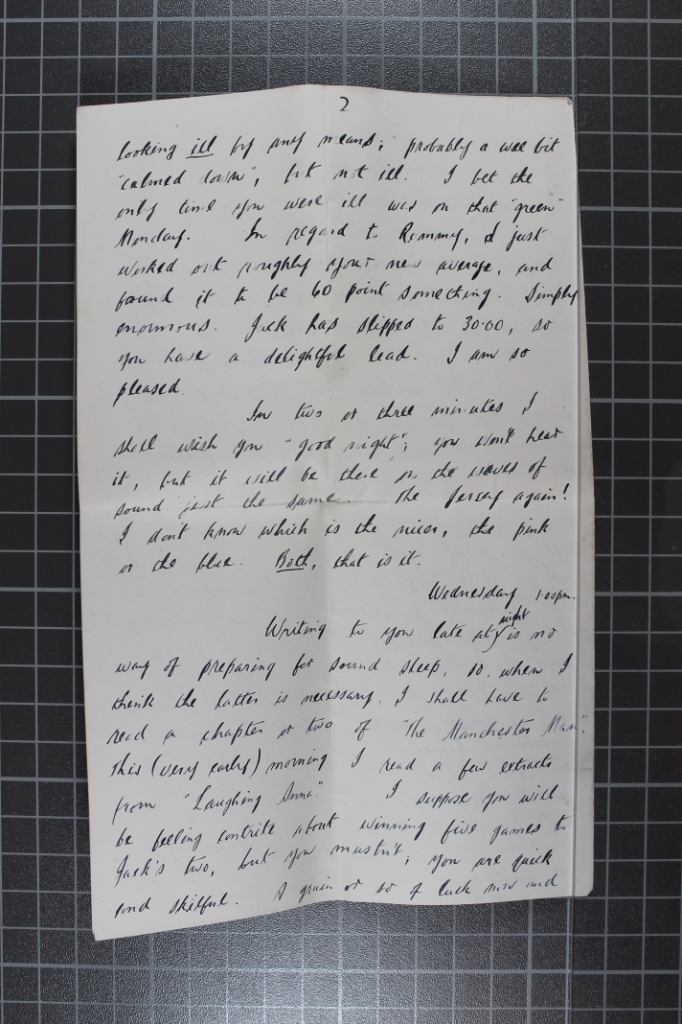 2
looking ill by any means; probably a wee bit
"calmed down", but not ill. I bet the
only time you were ill was on that "green"
Monday. In regard to Rummy, I just
worked out roughly your new average, and
found it to be 60 point something. Simply
enormous. Jack has slipped to 30.00, so
you have a delightful lead. I am so
pleased.
In two or three minutes I
shall wish you "good night"; you won't hear
it, but it will be there on the waves of
sound just the same. The jersey again!
I don't know which is the nicer, the pink
or the blue. Both, that is it.
Wednesday 1.00pm.
Writing to you late at night is no
way of preparing for sound sleep, so, when I
think the latter is necessary, I shall have to
read a chapter or two of "The Manchester Man".
This (very early) morning I read a few extracts
from "Laughing Anna". I suppose you will
be feeling contrite about winning five games to
Jack's two, but you mustn't; you are quick
and skilful. A grain or so of luck now and